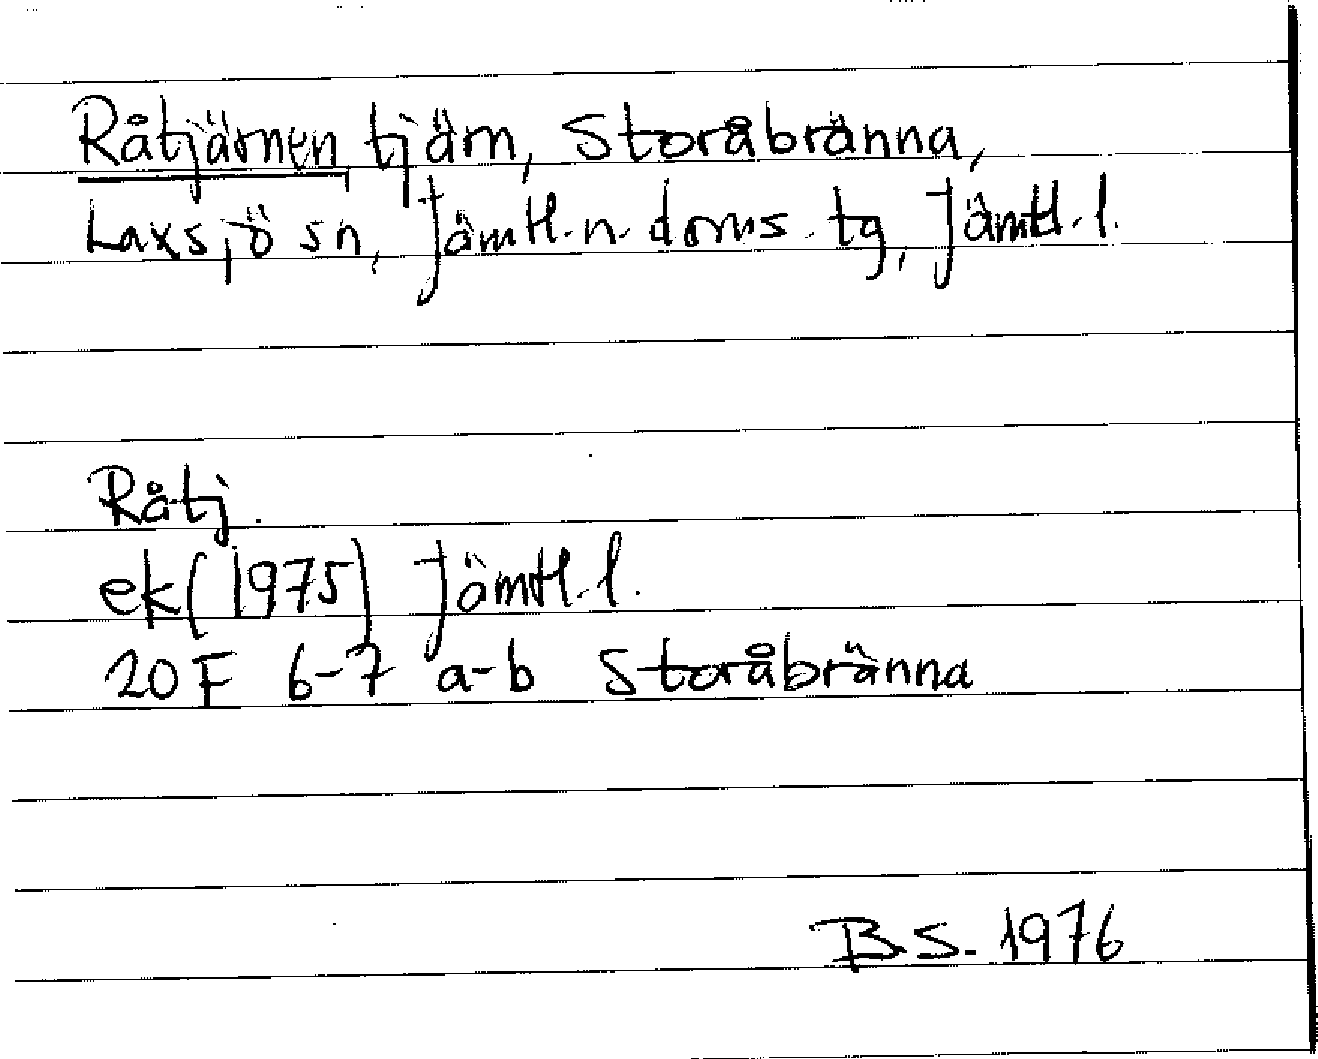 Råtjärnen tjärn, Storåbränna,
Laxsjö sn, Jämtl. n. doms. tg, Jämtl. l.
Råtj.
ek (1975) Jämtl. l.
20 F 6-7 a-b Storåbränna
B.S. 1976